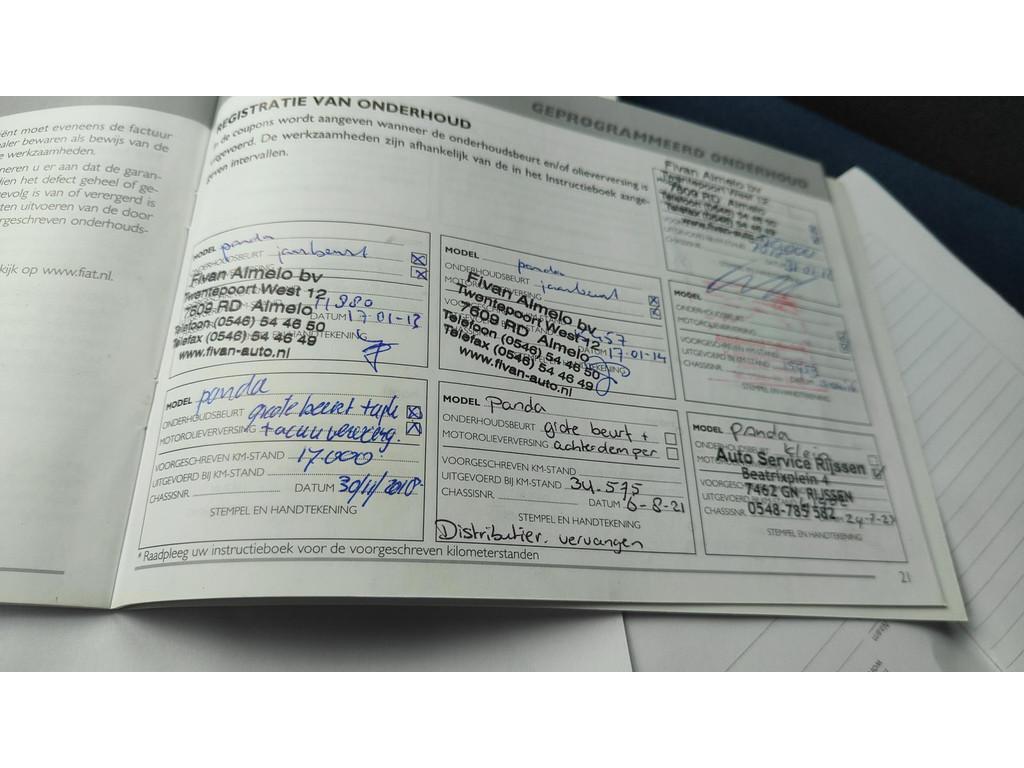 ënt moet eveneens de factuur
aler bewaren als bewijs van de
e werkzaamheden.
neren u er aan dat de garan-
dien het defect geheel of ge-
evolg is van of verergerd is
ten uitvoeren van de door
rgeschreven onderhouds-
kijk op www.fiat.nl.
GEPROGRAMMEERD ONDERHOUD
REGISTRATIE VAN ONDERHOUD
In de coupons wordt aangeven wanneer de onderhoudsbeurt en/of olieverversing is
uitgevoerd. De werkzaamheden zijn afhankelijk van de in het Instructieboek aange-
geven intervallen.
MODEL panda
ONDERHOUDSBEURT jaarbeurt
Fivan Almelo bv
Twentepoort West 12
7609 RD Almelo
DATUM 17-01-13
Telefoon (0546) 54 46 50
Telefax (0546) 54 46 49
www.fivan-auto.nl
MODEL panda
ONDERHOUDSBEURT jaarbeurt
Fivan Almelo bv
Twentepoort West 12
7609 RD Almelo
DATUM 17-01-14
Telefoon (0546) 54 46 50
Telefax (0546) 54 46 49
www.fivan-auto.nl
Fivan Almelo bv
Twentepoort West 12
7609 RD Almelo
Telefoon (0546) 54 46 50
Telefax (0546) 54 46 49
www.fivan-auto.nl
CHASSISNR.
MODEL
ONDERHOUDSBEURT
MOTOROLIEVERVERSING
VOORGESCHREVEN KM-STAND
UITGEVOERD BIJ KM-STAND
CHASSISNR. DATUM
STEMPEL EN HANDTEKENING
MODEL panda
ONDERHOUDSBEURT grote beurt
MOTOROLIEVERVERSING
VOORGESCHREVEN KM-STAND 17.000
UITGEVOERD BIJ KM-STAND
CHASSISNR. DATUM 30/11/2018
STEMPEL EN HANDTEKENING
MODEL Panda
ONDERHOUDSBEURT grote beurt +
MOTOROLIEVERVERSING achterdemper
VOORGESCHREVEN KM-STAND
UITGEVOERD BIJ KM-STAND 34.575
CHASSISNR. DATUM 6-8-21
STEMPEL EN HANDTEKENING
Distributier. vervangen
MODEL panda
ONDERHOUDSBEURT klein
Auto Service Rijssen
Beatrixplein 4
7462 GN RIJSSEN
0548-785 582
CHASSISNR.
STEMPEL EN HANDTEKENING
* Raadpleeg uw instructieboek voor de voorgeschreven kilometerstanden
21